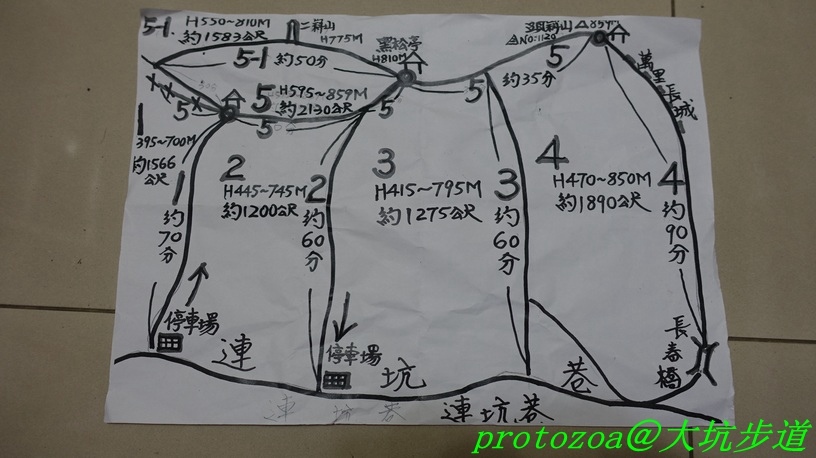 5-1. H550~810M
約1583公尺
H775M
5-1 約50分
黑松亭
H810M
頭嵙山 △859M
△NO:1120
5
約35分
萬里長城
5
5 H595~859M
約2130公尺
5
5
5
1
395~700M
約1566
公尺
1
約70分
2
H445~745M
約1200公尺
2
約60分
3
H415~795M
約1275公尺
3
約60分
4
H470~850M
約1890公尺
4
約90分
停車場
停車場
長春橋
連 坑 巷
連 坑 巷 連坑巷
protozoa@大坑步道